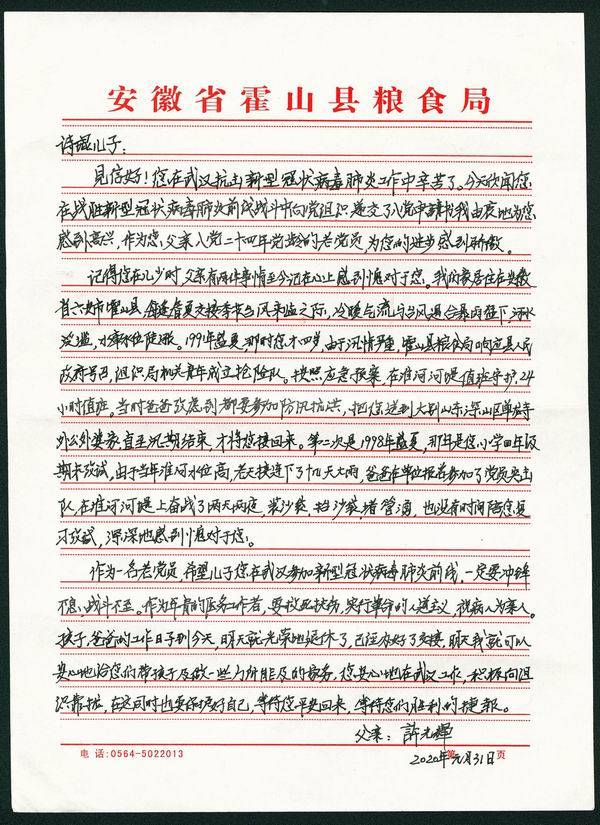 安徽省霍山县粮食局
儿子：
见信好！您在武汉抗击新型冠状病毒肺炎工作中辛苦了。今天欣闻您
在战胜新型冠状病毒肺炎前线战斗中向党组织递交了入党申请书我由衷地为您
感到高兴，作为您父亲入党二十四年党龄的老党员，为您的进步感到骄傲。
记得您在儿少时，父亲有两件事情至今记在心上感到愧对于您。我的家居住在安徽
省六安市霍山县，每逢春夏交接季节台风来临之际，冷暖气流与台风遇合暴雨往下，河水
泛滥，水库水位使涨。1991年盛夏，那时您才四岁，由于汛情严重，霍山县粮食局响应县人民
政府号召，组织局机关青年成立抢险队。按照应急预案，在淮河河堤值班守护，24
小时值班，当时爸爸考虑到都要参加防汛抗洪，把您送到大别山东深山区单龙寺
外公外婆家直至汛期结束，才将您接回来。第二次是1998年盛夏，那年是您小学四年级
期末考试，由于当年淮河水位高，老天接连下了十几天大雨，爸爸在单位报名参加了党员突击
队，在淮河河堤上奋战了两天两夜，装沙袋，挡沙袋，堵管涌，也没有时间陪您复
习考试，深深地感到愧对于您。
作为一名老党员，希望儿子您在武汉参加新型冠状病毒肺炎前线，一定要冲锋
不息，战斗不至。作为年青的医务工作者，要救死扶伤，实行革命的人道主义，视病人为亲人。
孩子，爸爸的工作日子到今天，明天就光荣地退休了，已经办好了交接，明天我就可以
安心地给您们带孩子及做一些力所能及的家务，您安心地在武汉工作，积极向组
织靠拢，在这同时也要保护好自己，等待您平安回来，等待您们胜利的捷报。
父亲：许光辉
电话：0564-5022013 第 页
2020年元月31日